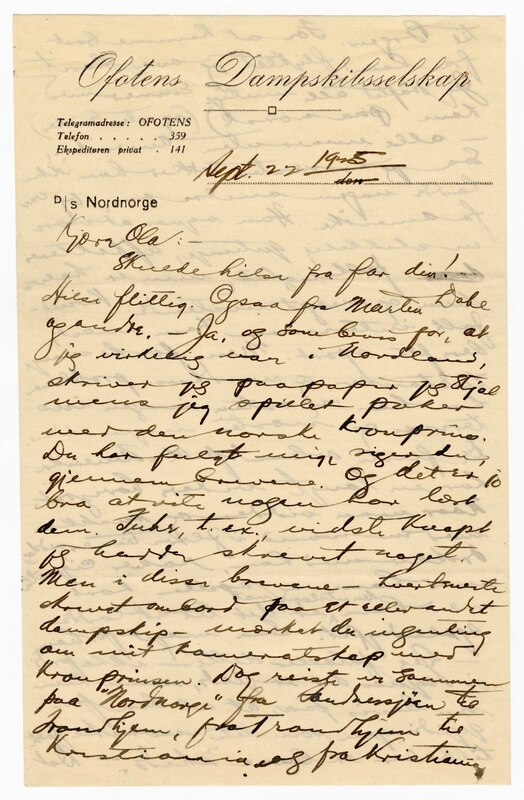 Ofotens Dampskibsselskap
Telegramadresse: OFOTENS
Telefon . . . . . 359
Ekspeditøren privat . 141
Sept. 22 1925
den
D/s Nordnorge
Kjære Ola: —
Skulde hilse fra far din!
Hilse flittig. Ogsaa fra Martin Dahl
og andre. — Ja, og som bevis for, at
jeg virkelig var i Nordland,
skriver jeg paa papir jeg stjal
mens jeg spillet poker
med den norske Kronprins.
Du har fulgt mig, siger du,
gjennem brevene. Og det er jo
bra at vite nogen har læst
dem. , t. ex., vidste knapt
jeg hadde skrevet noget.
Men i disse brevene —
skrevet ombord paa et eller andet
dampskip — merket du ingenting
om mit kameratskap med
Kronprinsen. Dog reiste vi sammen
paa "Nordnorge" fra Sandnessjøen til
Trondhjem, fra Trondhjem til
Kristiania og fra Kristiania